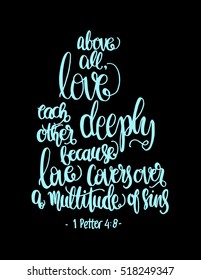 above
all,
love
each
other deeply
because
love covers over
a multitude of sins
- 1 Petter 4:8 -
shutterstock.com · 518249347